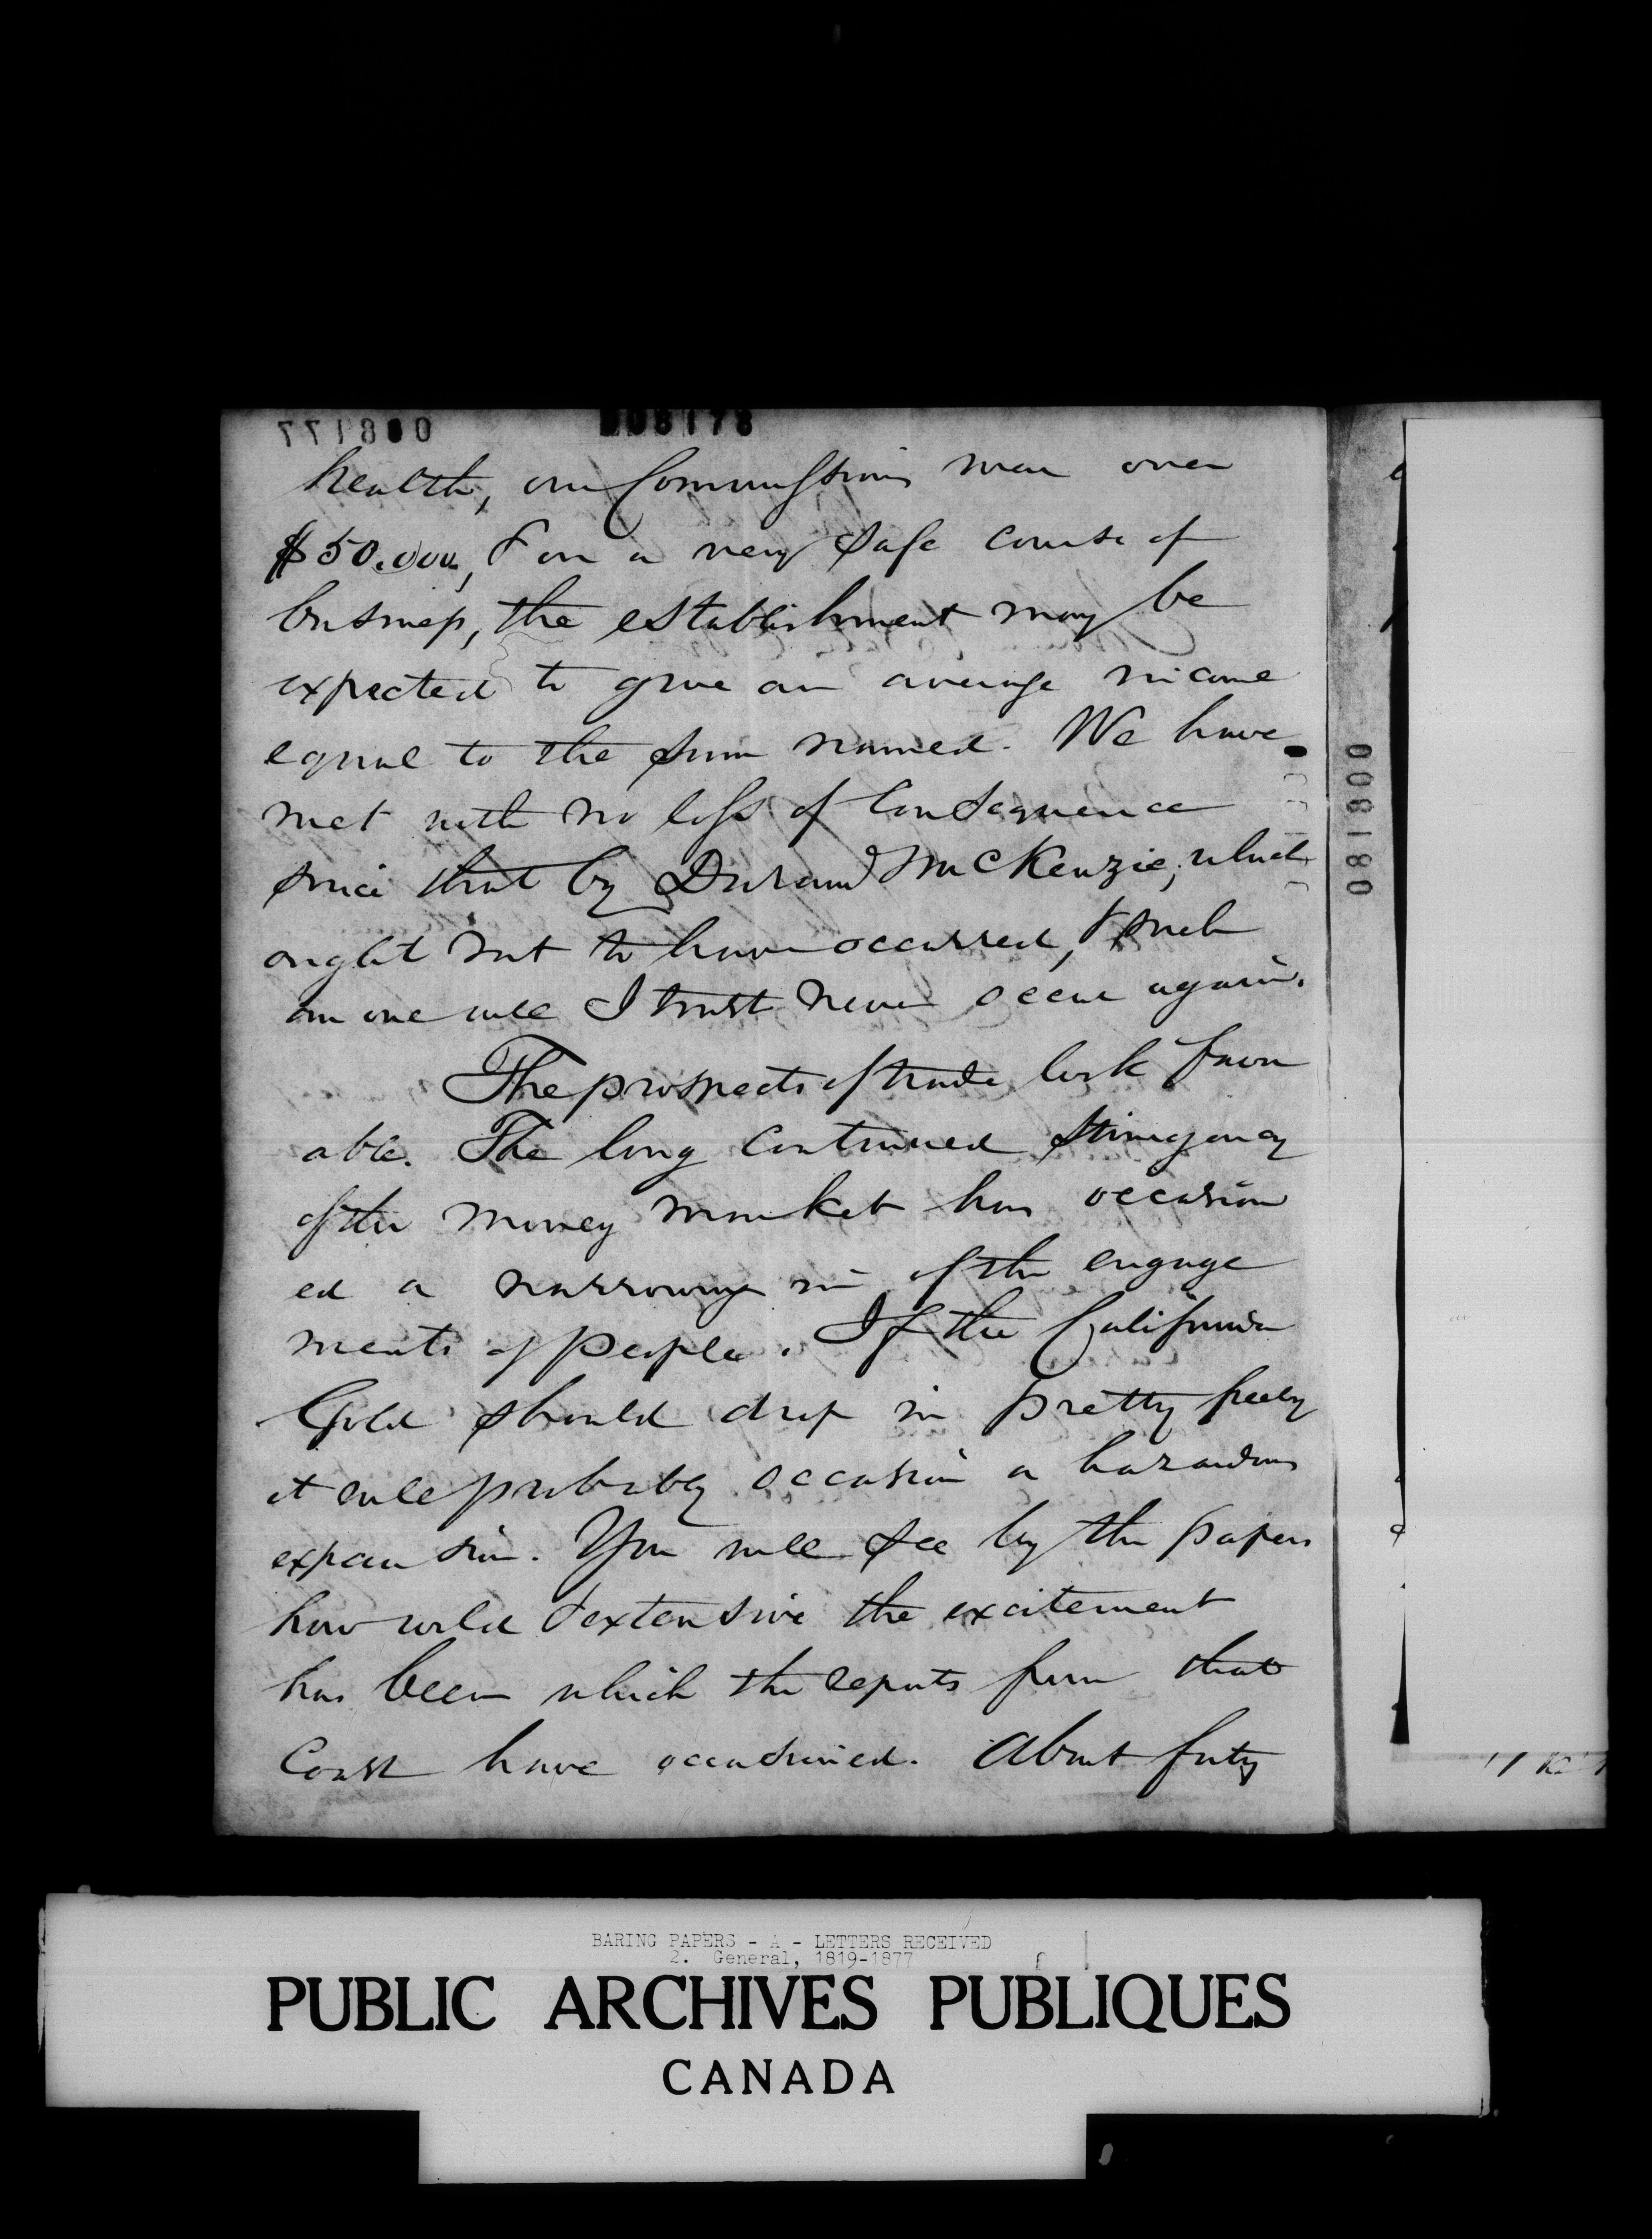 008177 008178
health, our Commissions were over
$50.000, & on a very safe course of
business, the establishment may be
expected to give an average income
equal to the sum named. We have
met with no loss of Consequence
since that by Durand McKenzie, which
ought not to have occurred, & such
an one will I trust never occur again.
The prospects of trade look favor
able. The long continued stringency
of the money market has occasion
ed a narrowing in of the engage
ments of people. If the California
Gold should drop in pretty freely
it will probably occasion a hazardous
expansion. You will see by the papers
how wild & extensive the excitement
has been which the reports from that
Coast have occasioned. About forty
008180
BARING PAPERS - A - LETTERS RECEIVED
2. General, 1819-1877
PUBLIC ARCHIVES PUBLIQUES
CANADA